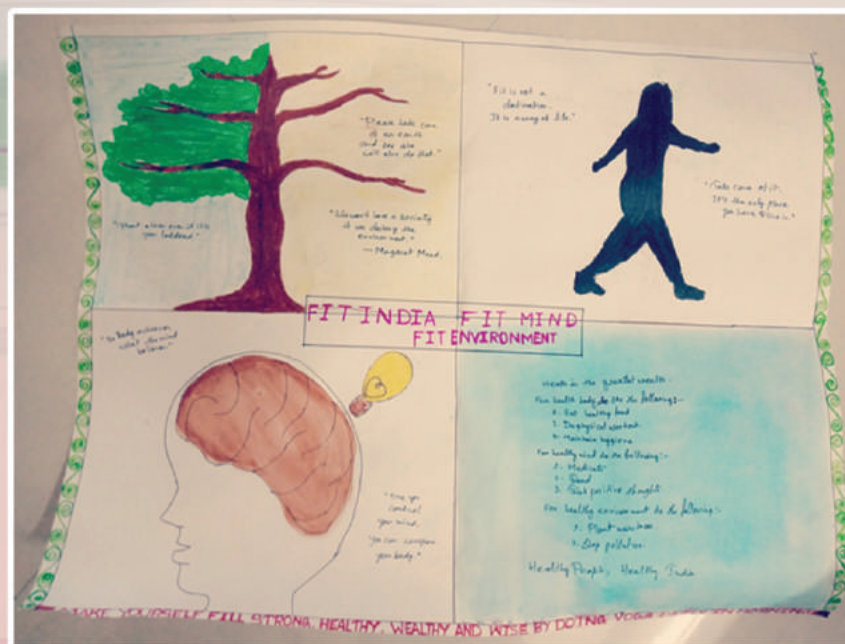 "Please take care
of an earth
and she also
will also do that."
"Fit is not a
destination.
It is a way of life."
"Plant a love even if it's
your
"We won't have a society
if we destroy the
environment."
— Margaret Mead.
"Take care of it.
It's the only place
you have to live in"
FIT INDIA FIT MIND
FIT ENVIRONMENT
body achieves
what the mind
believes."
you
control
your mind.
You can conquer
your body."
Health is the greatest wealth.
For health body do the following:-
Eat healthy food
Do physical workout
Maintain hygiene
For healthy mind do the following:-
1. Meditate
2. Read
3. positive thoughts
For healthy environment do the following:-
1. Plant
2. Stop pollution.
Healthy People, Healthy India
MAKE YOURSELF STRONG, HEALTHY, WEALTHY AND WISE BY DOING YOGA